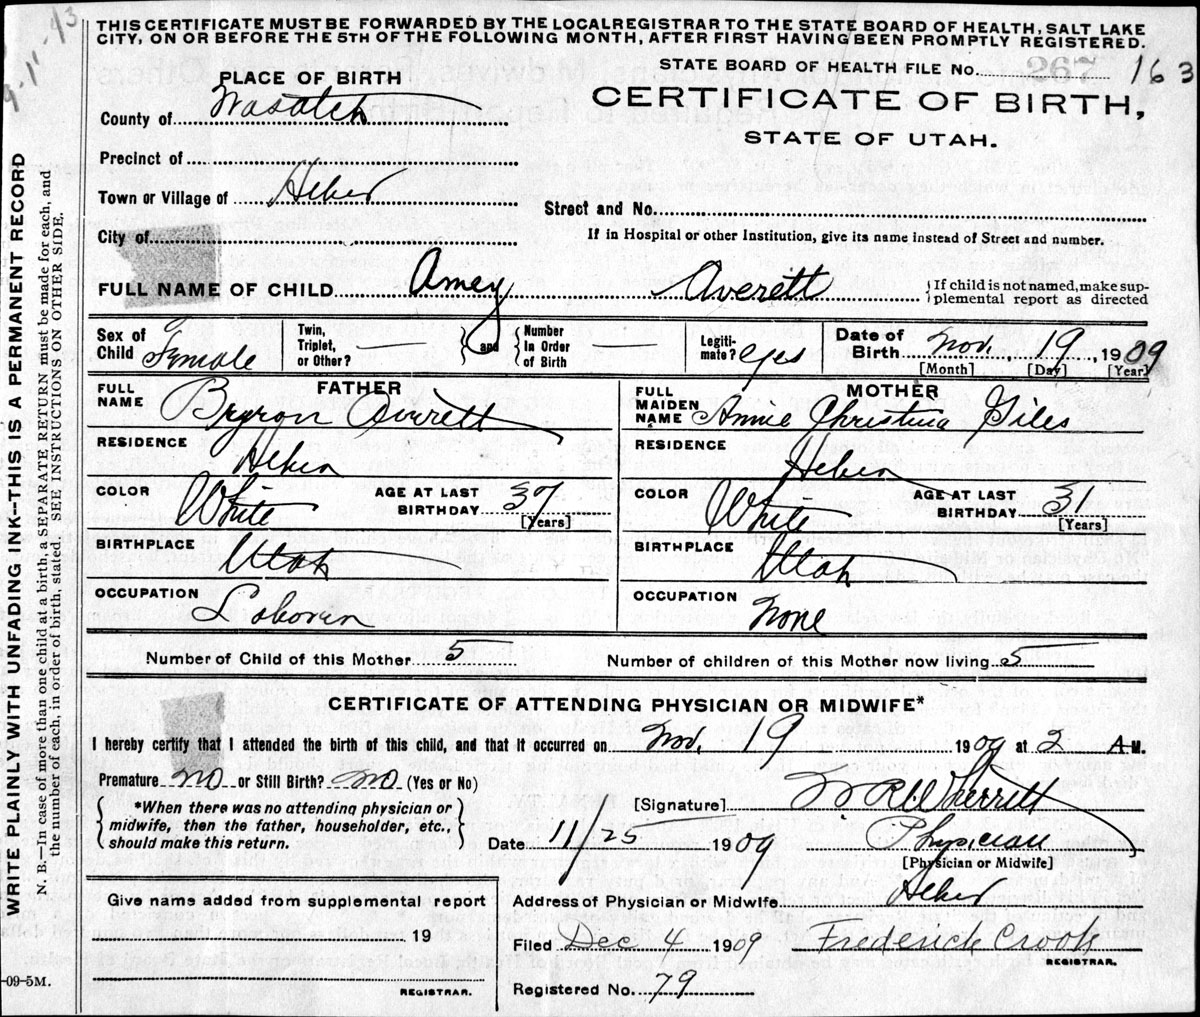 9-11-13
THIS CERTIFICATE MUST BE FORWARDED BY THE LOCAL REGISTRAR TO THE STATE BOARD OF HEALTH, SALT LAKE
CITY, ON OR BEFORE THE 5TH OF THE FOLLOWING MONTH, AFTER FIRST HAVING BEEN PROMPTLY REGISTERED.
STATE BOARD OF HEALTH FILE No. 267 163
PLACE OF BIRTH
CERTIFICATE OF BIRTH,
STATE OF UTAH.
County of Wasatch
Precinct of
Town or Village of Heber
Street and No.
City of
If in Hospital or other Institution, give its name instead of Street and number.
FULL NAME OF CHILD Amey Averett
If child is not named, make sup-
plemental report as directed
Sex of Child Female
Twin, Triplet, or Other? — and Number In Order of Birth —
Legiti-mate? yes
Date of Birth Nov. 19 1909
[Month] [Day] [Year]
FATHER
FULL NAME Bryron Averett
RESIDENCE Heber
COLOR White AGE AT LAST BIRTHDAY 37 [Years]
BIRTHPLACE Utah
OCCUPATION Laborer
MOTHER
FULL MAIDEN NAME Annie Christina Giles
RESIDENCE Heber
COLOR White AGE AT LAST BIRTHDAY 31 [Years]
BIRTHPLACE Utah
OCCUPATION None
Number of Child of this Mother 5 Number of children of this Mother now living 5
CERTIFICATE OF ATTENDING PHYSICIAN OR MIDWIFE*
I hereby certify that I attended the birth of this child, and that it occurred on Nov. 19 1909 at 2 A M.
Premature no or Still Birth? no (Yes or No)
*When there was no attending physician or
midwife, then the father, householder, etc.,
should make this return.
[Signature] W R Wherritt
Date 11/25 1909 Physician
[Physician or Midwife]
Address of Physician or Midwife Heber
Give name added from supplemental report
19
REGISTRAR.
Filed Dec 4 1909 Frederick Crook
REGISTRAR.
Registered No. 79
WRITE PLAINLY WITH UNFADING INK—THIS IS A PERMANENT RECORD
N. B.—In case of more than one child at a birth, a SEPARATE RETURN must be made for each, and
the number of each, in order of birth, stated. SEE INSTRUCTIONS ON OTHER SIDE.
-09-5M.